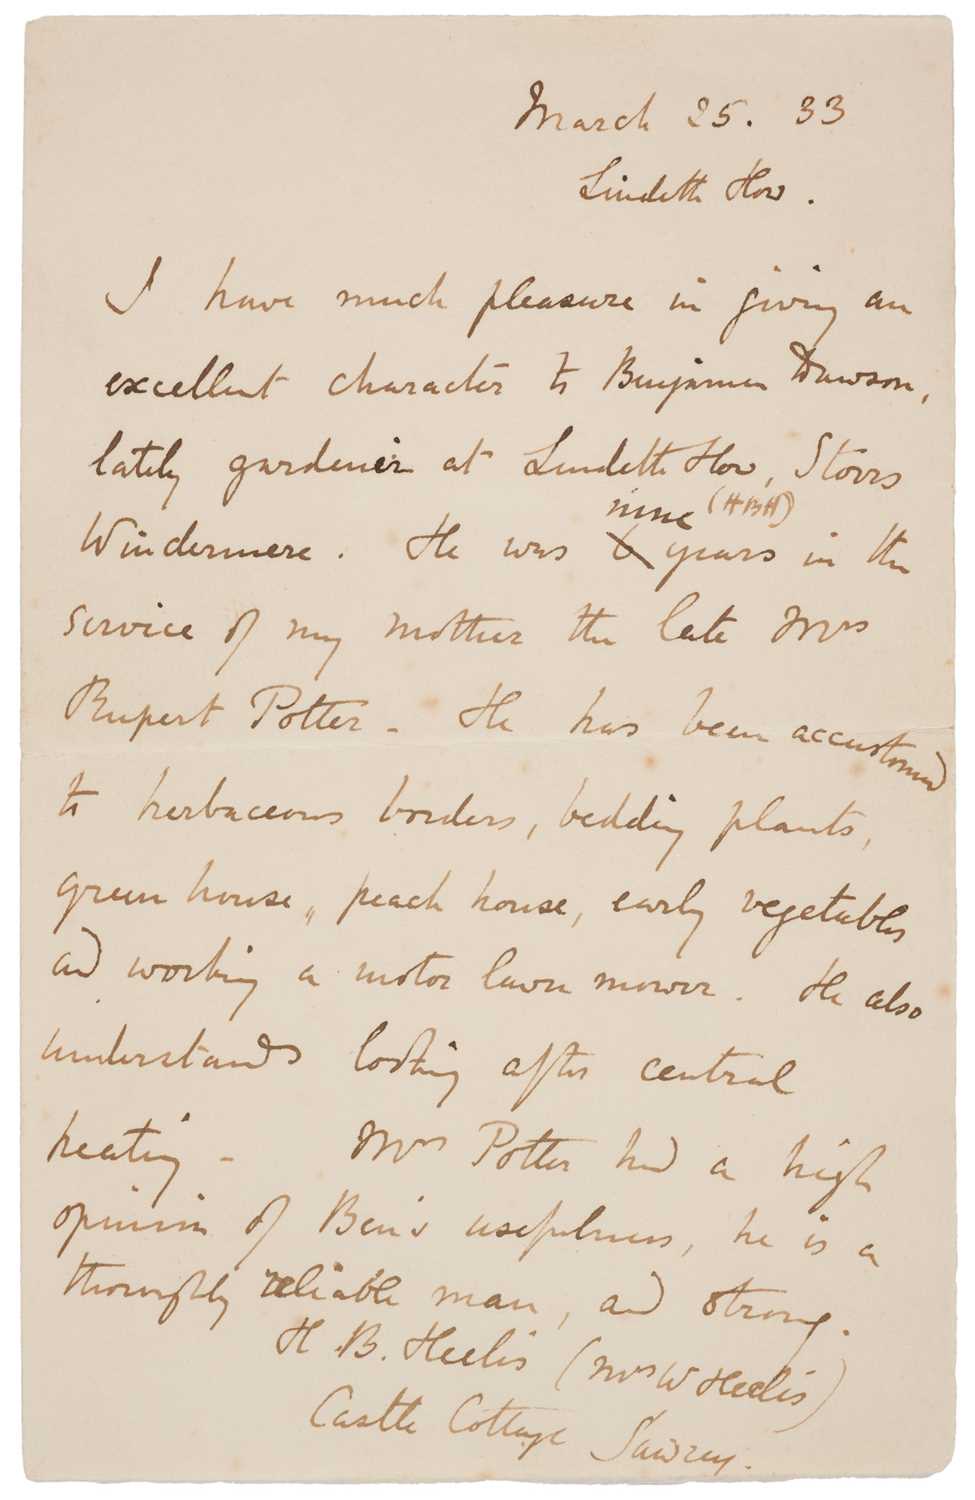 March 25. 33
Lindeth How.
I have much pleasure in giving an
excellent character to Benjamin Dawson,
lately gardener at Lindeth How, Storrs
nine (HBH)
Windermere. He was 6 years in the
service of my mother the late Mrs
Rupert Potter - He has been accustomed
to herbaceous borders, bedding plants,
green house, peach house, early vegetables
and working a motor lawn mower. He also
understands looking after central
heating - Mrs Potter had a high
opinion of Ben's usefulness, he is a
thoroughly reliable man, and strong.
H. B. Heelis (Mrs W Heelis)
Castle Cottage Sawrey.